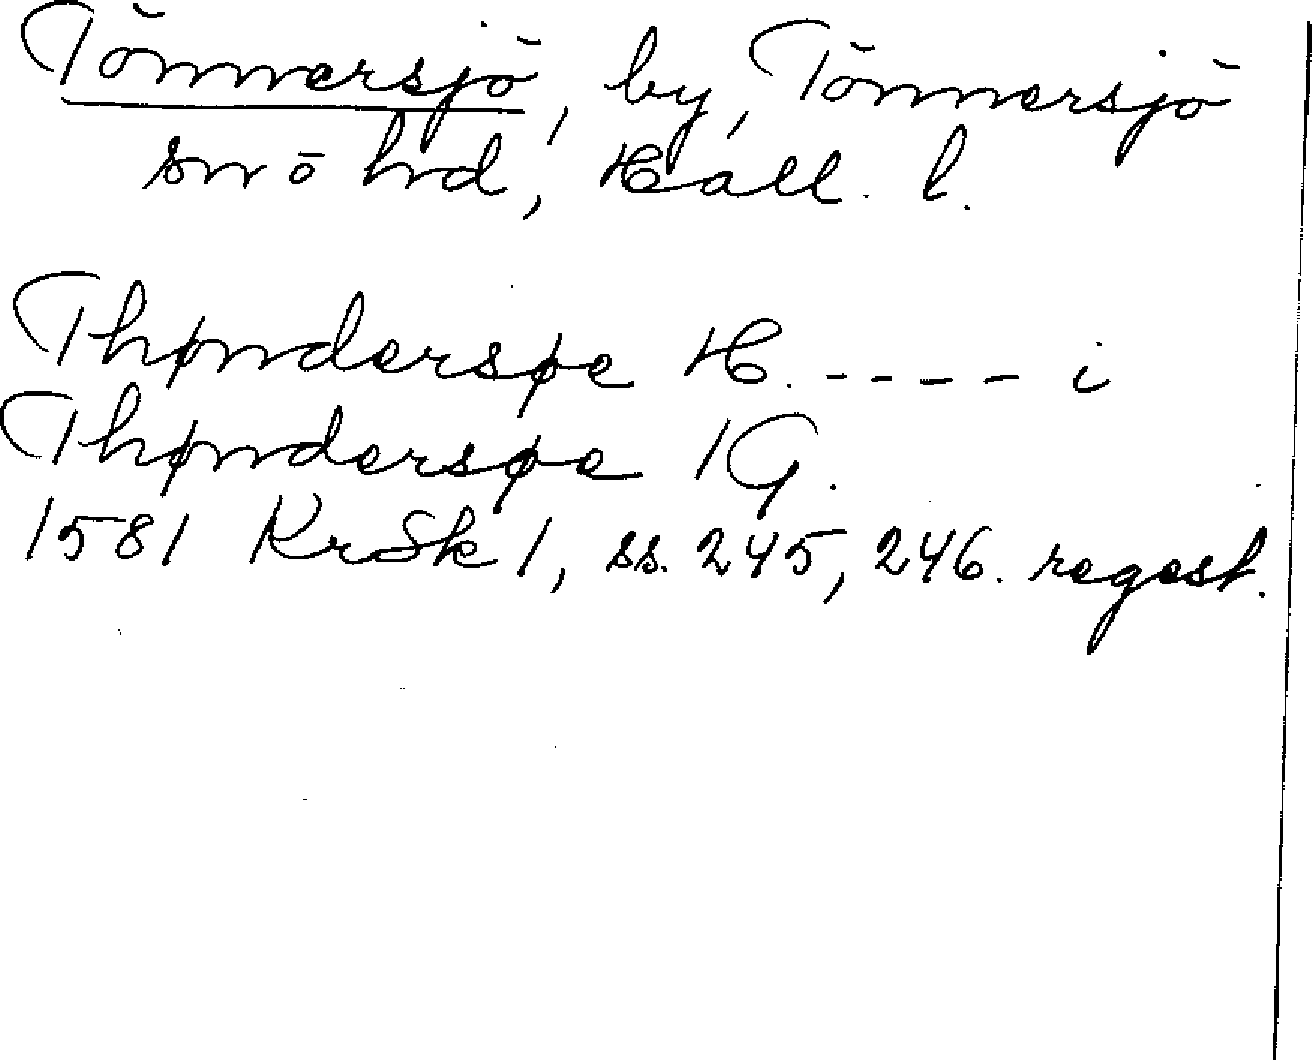 Tönnersjö, by, Tönnersjö
sn o hd, Hall. l.
Thøndersøe H. ---- i
Thøndersøe 1 G.
1581 KrSk 1, ss. 245, 246. regest.